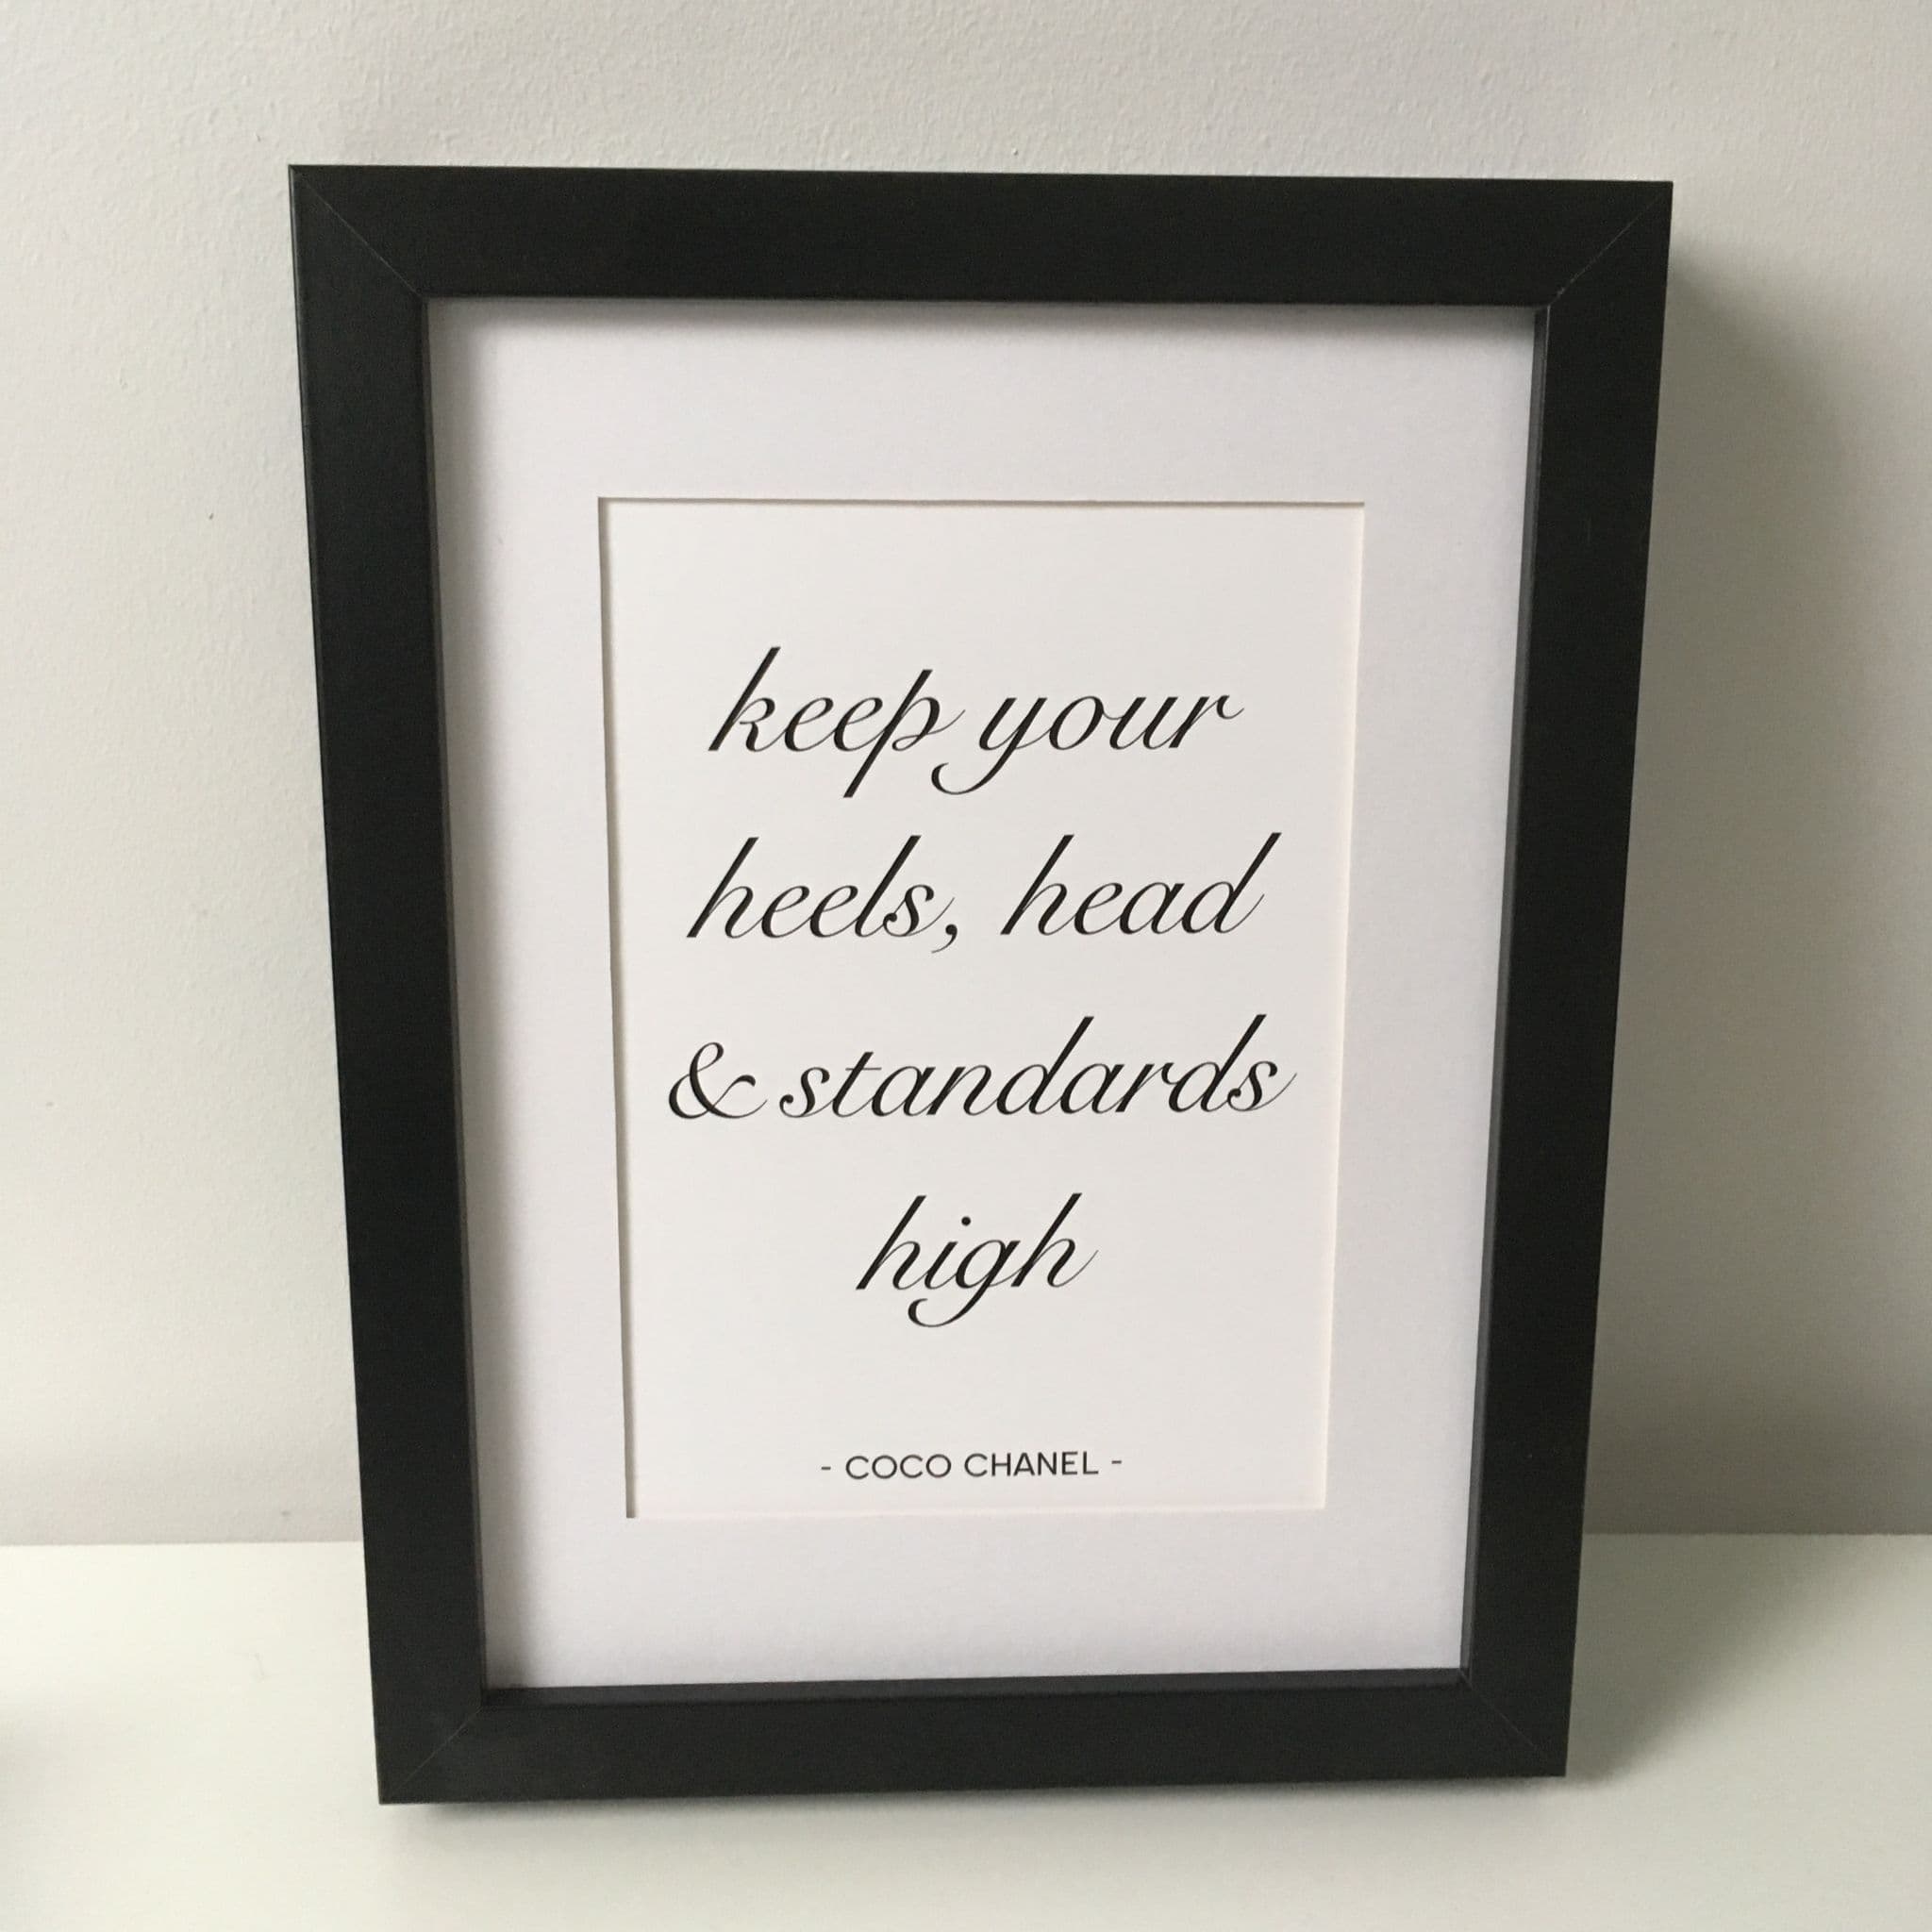 keep your
heels, head
& standards
high
- COCO CHANEL -